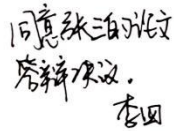 同意张三的论文
答辩决议.
李四